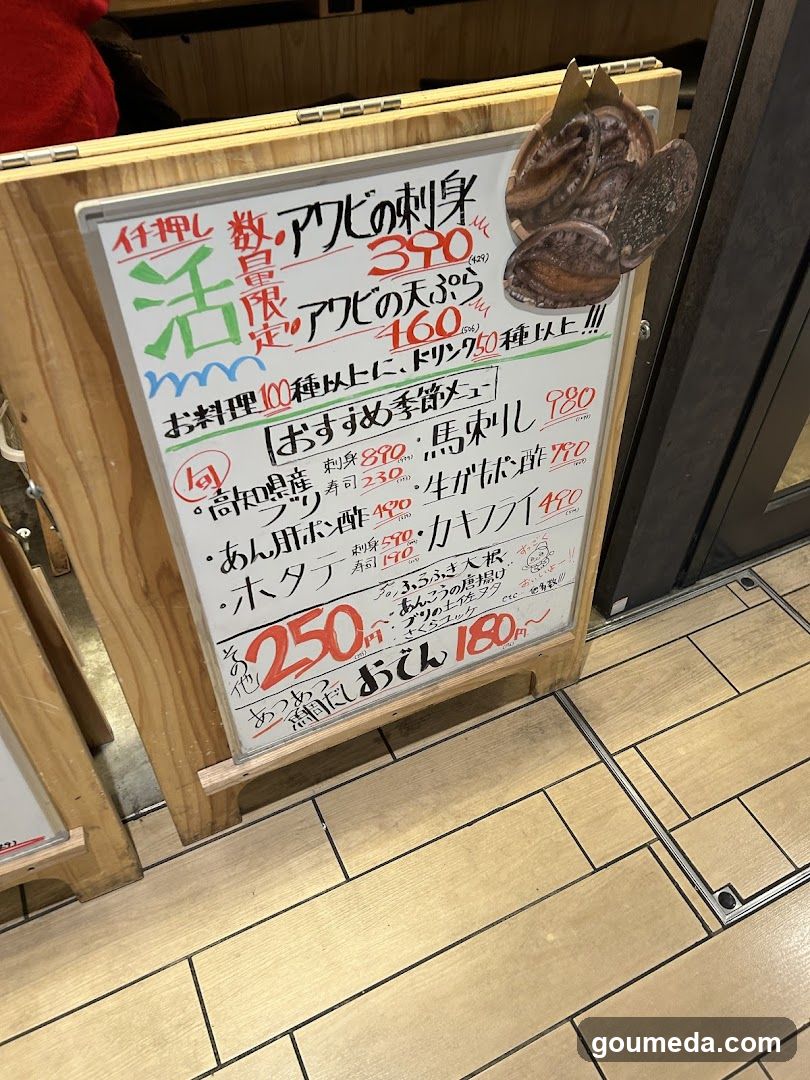 イチ押し
活
数量限定
・アワビの刺身
390 (429)
・アワビの天ぷら
460 (506)
お料理100種以上に、ドリンク50種以上!!!
おすすめ季節メニュー
旬
・高知県産ブリ 刺身 890 寿司 230
・馬刺し 980
・あん肝ポン酢 490
・生がきポン酢 790
・ホタテ 刺身 590 寿司 190
・カキフライ 490
その他 250円~
ふろふき大根
あんこうの唐揚げ
ブリの土佐ヌタ
さくらユッケ
etc… 他多数!!!
あつあつ
鯛だし おでん 180円~
goumeda.com